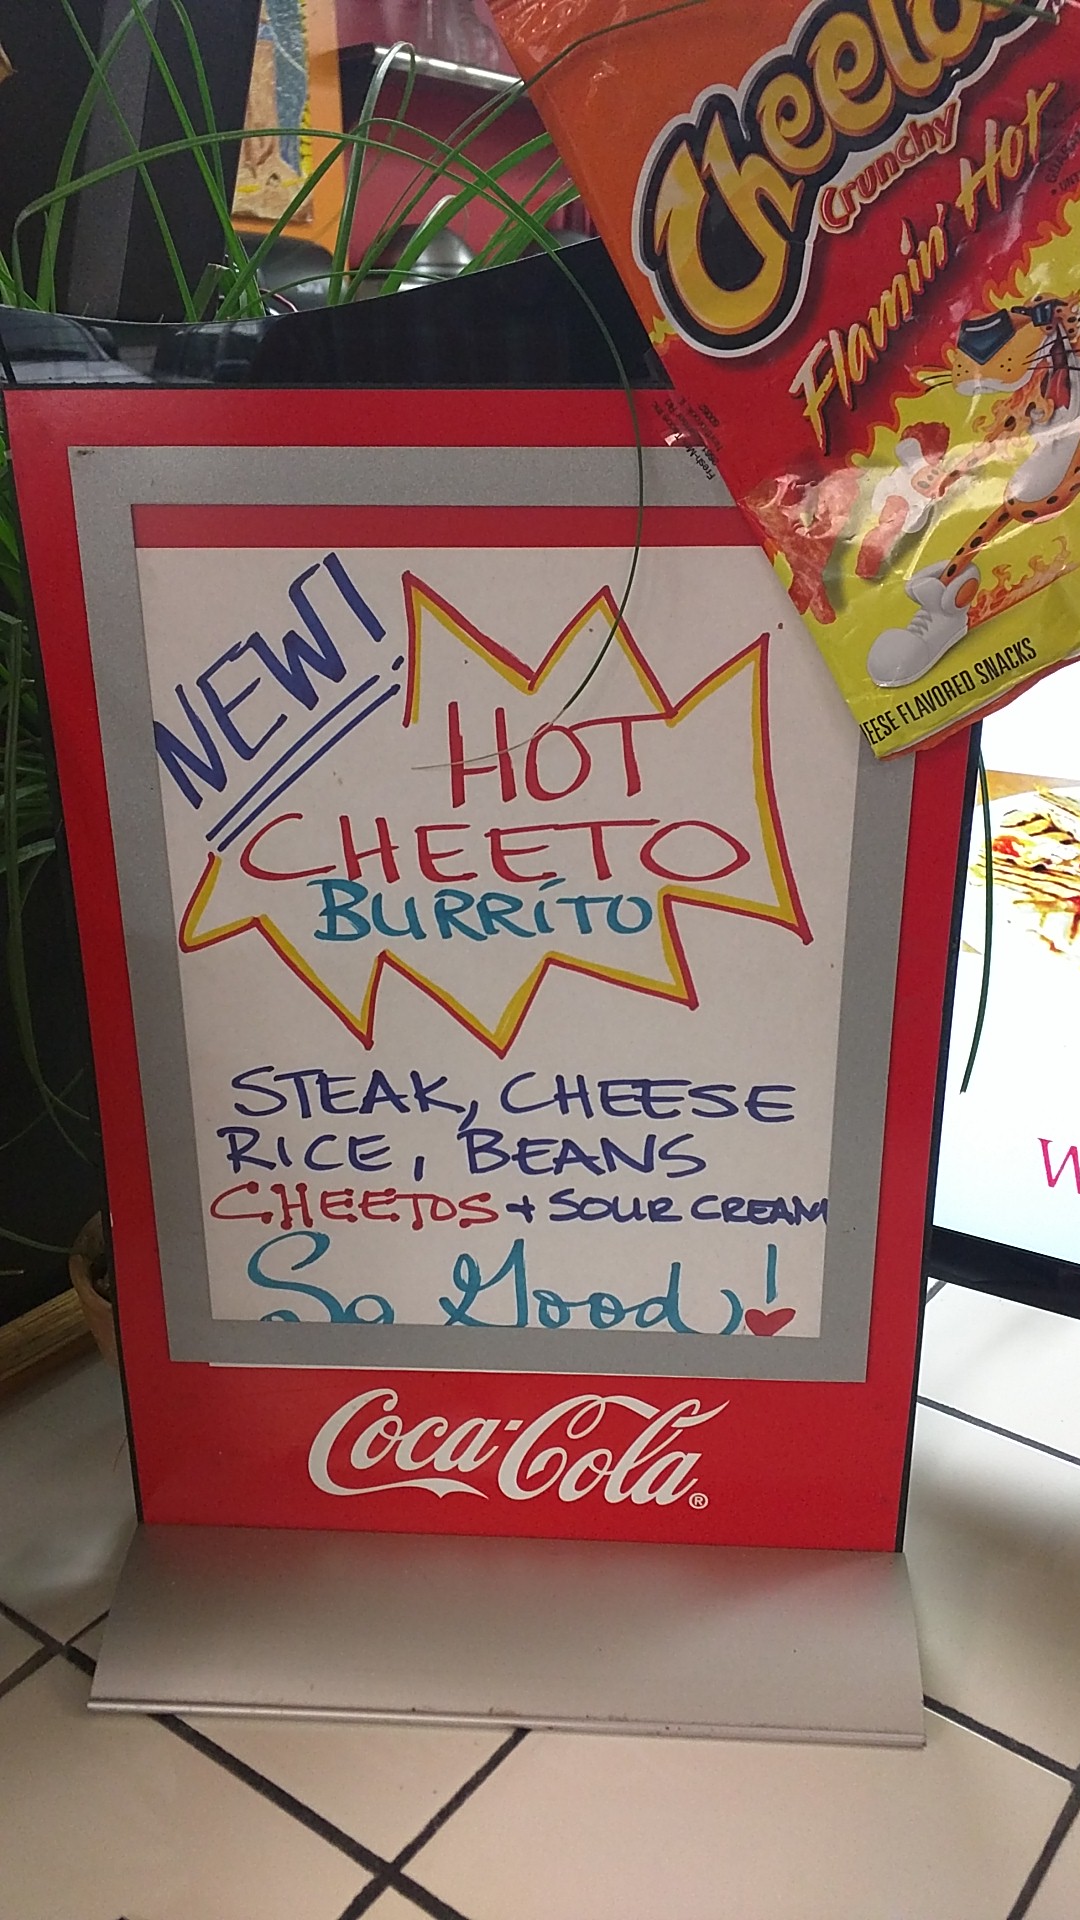 Cheetos
Crunchy
Flamin' Hot
EESE FLAVORED SNACKS
NEW!
HOT
CHEETO
BURRITO
STEAK, CHEESE
RICE, BEANS
CHEETOS + SOUR CREAM
So Good!
Coca-Cola®
W